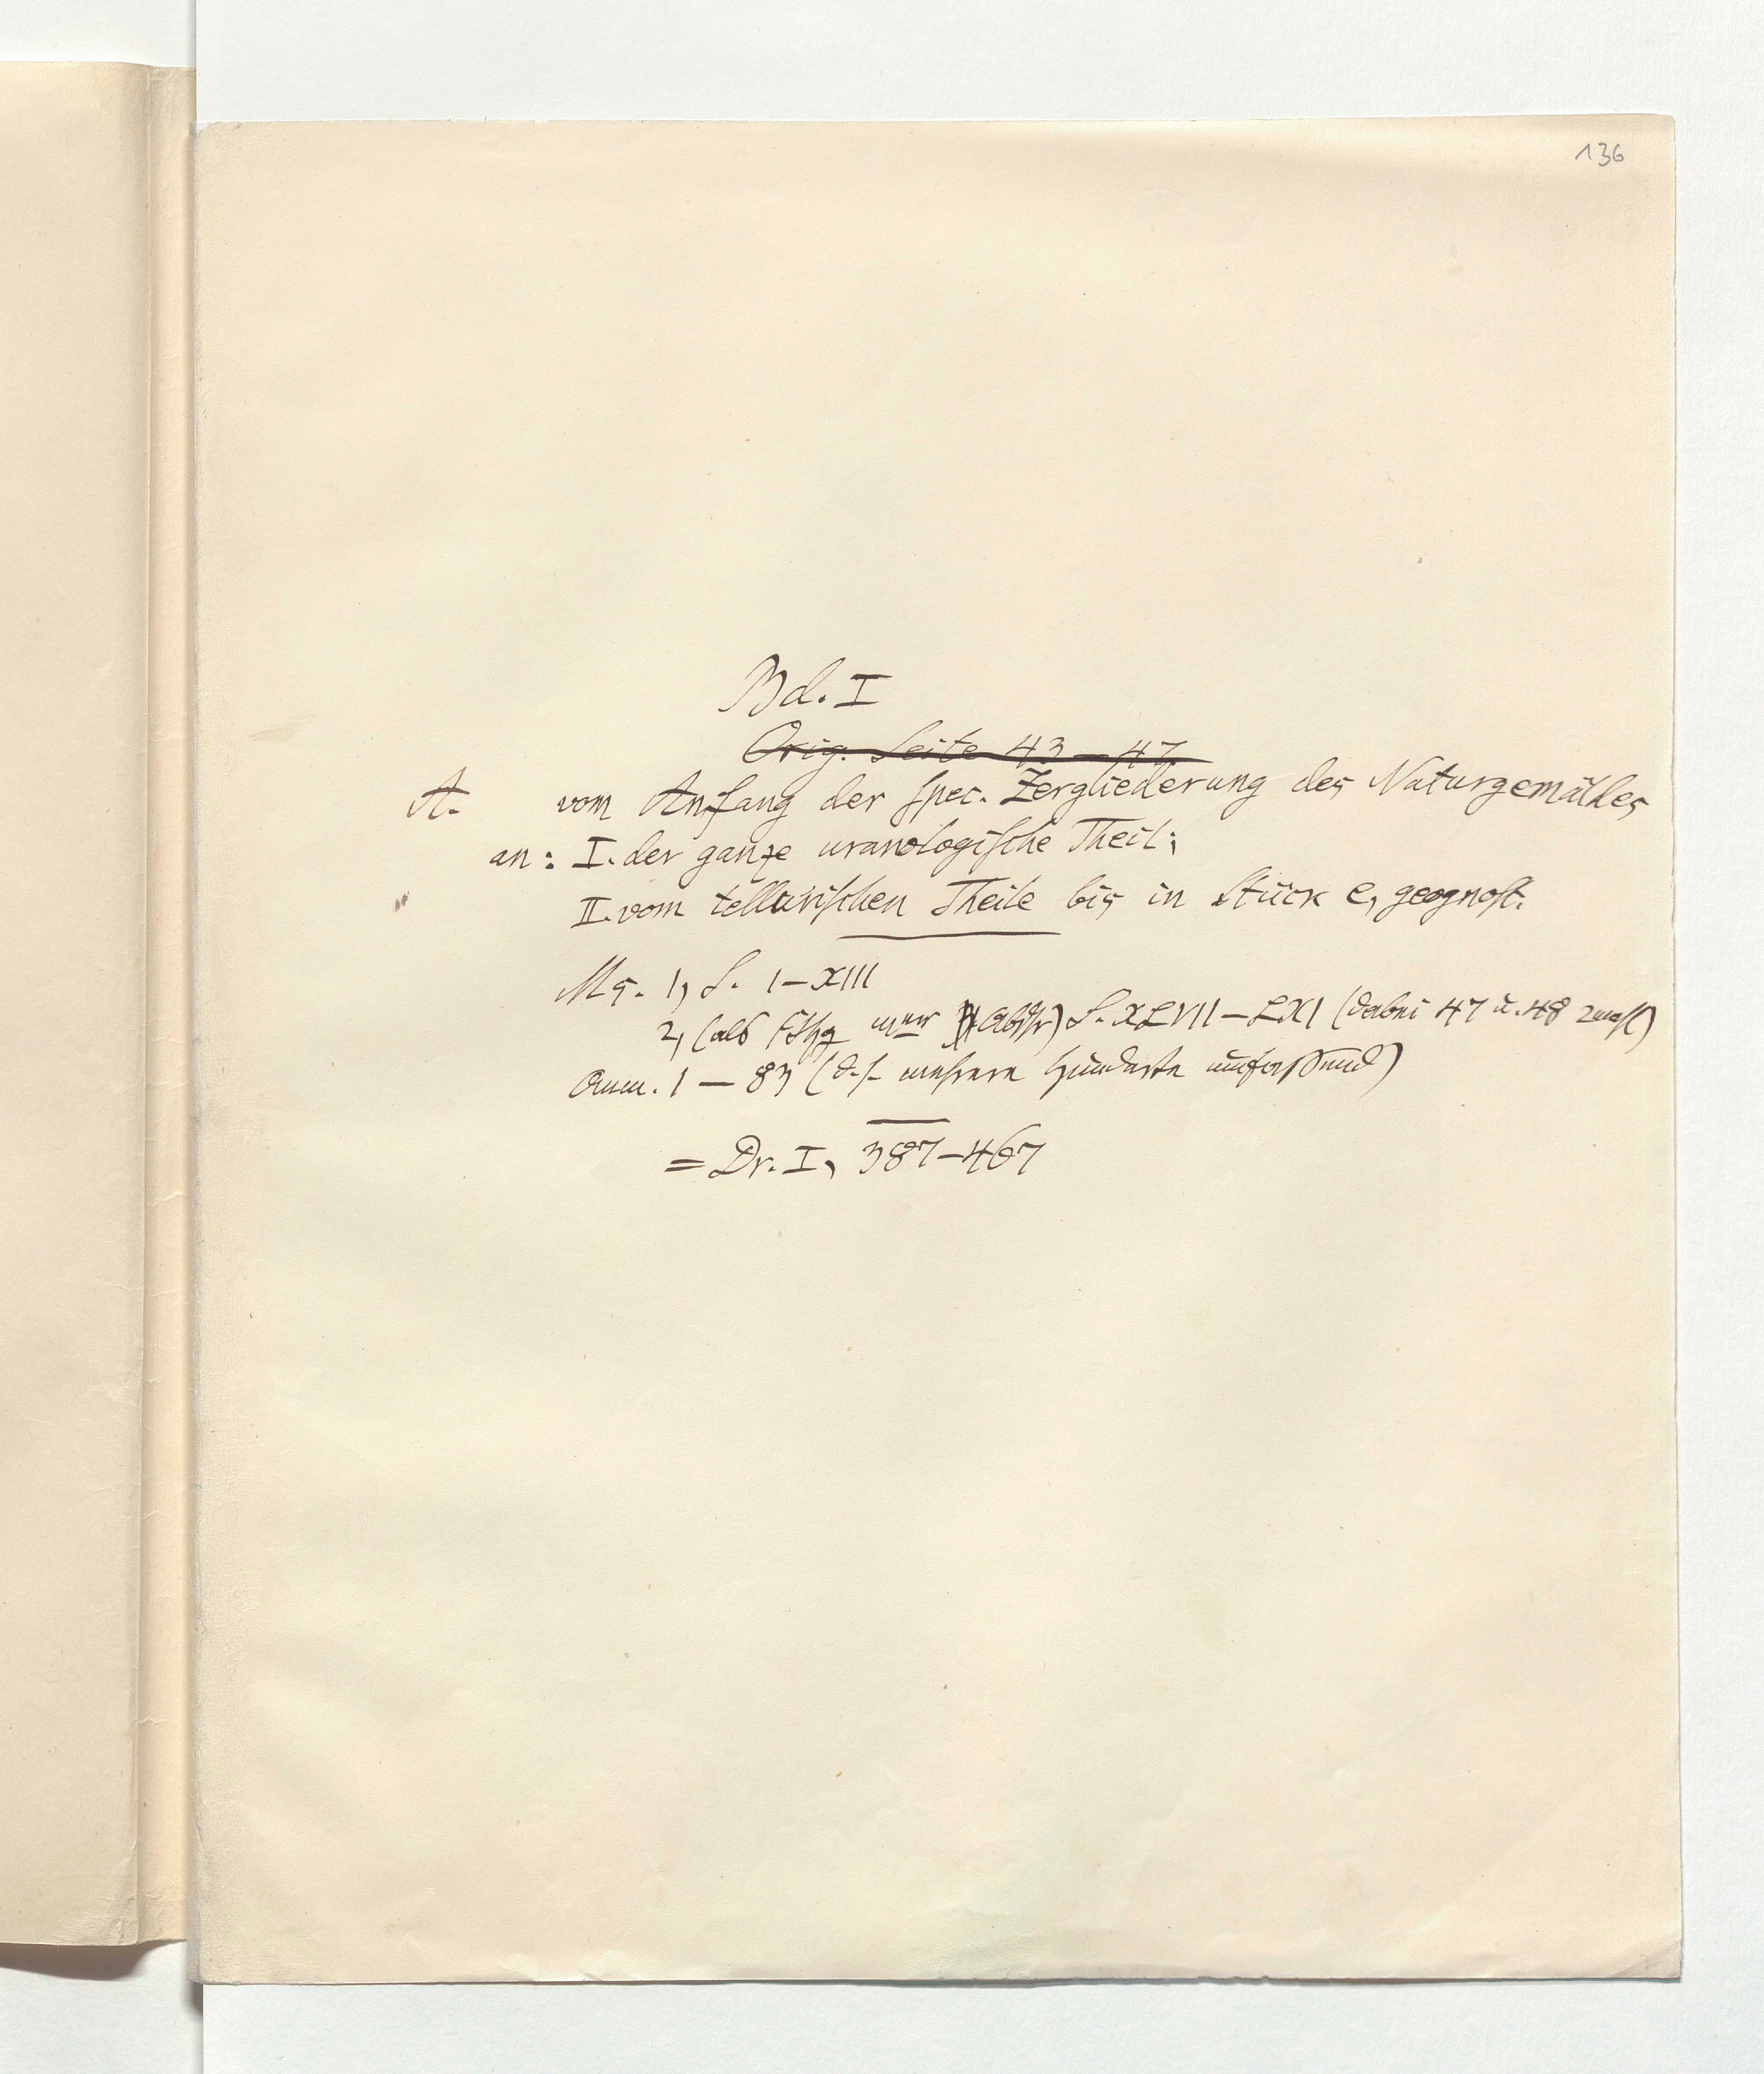 136
Bd. I
Orig. Seite 43–47
A. vom Anfang der spec. Zergliederung des Naturgemäldes
an: I. der ganze uranologische Theil;
II. vom tellurischen Theile bis in Stück e, geognost.
Ms. 1, S. I–XIII
2, (als einer Abschr) S. XLVII–LXI (dabei 47 u. 48 2mal)
Anm. 1–83 (d. h. mehrere Hunderte umfassend)
= Dr. I, 387–467